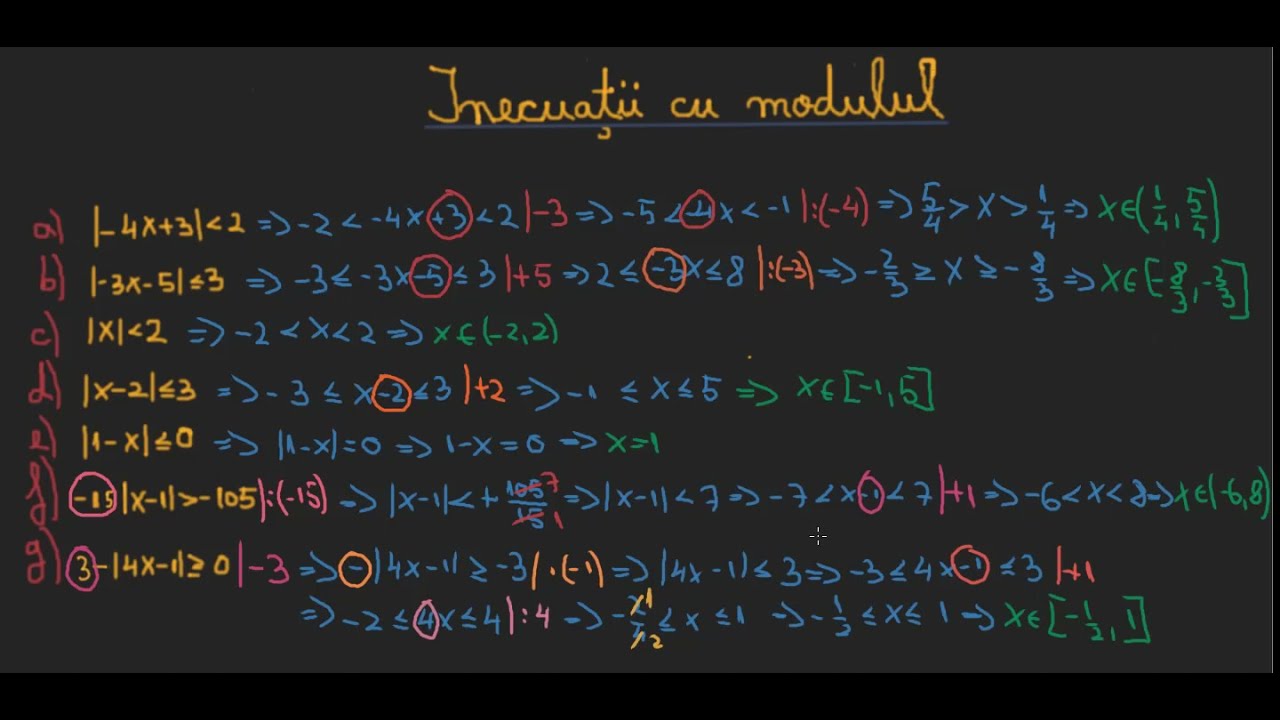 Inecuații cu modulul
a) |-4x+3|<2 => -2 < -4x+3 < 2 |-3 => -5 < -4x < -1 |:(-4) => 5/4 > x > 1/4 => x∈(1/4, 5/4)
b) |-3x-5|≤3 => -3 ≤ -3x-5 ≤ 3 |+5 => 2 ≤ -3x ≤ 8 |:(-3) => -2/3 ≥ x ≥ -8/3 => x∈[-8/3, -2/3]
c) |x|<2 => -2 < x < 2 => x∈(-2,2)
d) |x-2|≤3 => -3 ≤ x-2 ≤ 3 |+2 => -1 ≤ x ≤ 5 => x∈[-1,5]
e) |1-x|≤0 => |1-x|=0 => 1-x=0 => x=1
f) -15|x-1|>-105 |:(-15) => |x-1|<+105/15 7 1 => |x-1|<7 => -7<x-1<7 |+1 => -6<x<8 => x∈(-6,8)
g) 3-|4x-1|≥0 |-3 => -|4x-1|≥-3 |·(-1) => |4x-1|≤3 => -3≤4x-1≤3 |+1
=> -2≤4x≤4 |:4 => -2/4 1 2 ≤ x ≤ 1 => -1/2 ≤ x ≤ 1 => x∈[-1/2, 1]